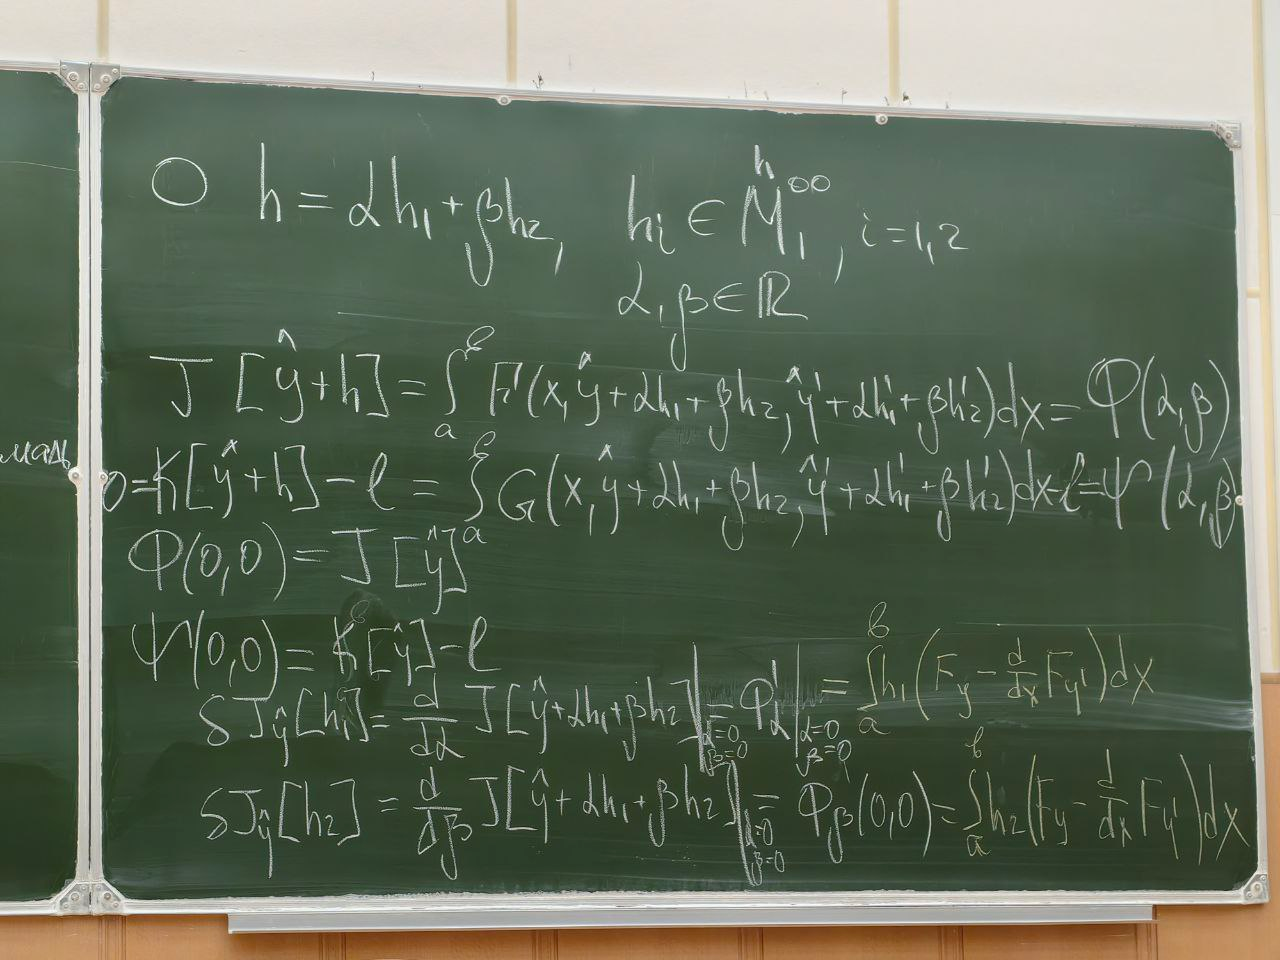 мадь
○ h = αh₁ + βh₂, hᵢ ∈ M̊₁⁰⁰, i = 1,2
α, β ∈ ℝ
J[ŷ+h] = ∫ₐᵇ F(x, ŷ + αh₁ + βh₂, ŷ' + αh₁' + βh₂')dx = Φ(α,β)
0 = K[ŷ+h] - l = ∫ₐᵇ G(x, ŷ + αh₁ + βh₂, ŷ' + αh₁' + βh₂')dx - l = Ψ(α,β)
Φ(0,0) = J[ŷ]
Ψ(0,0) = K[ŷ] - l
δJ_ŷ[h₁] = d/dα J[ŷ + αh₁ + βh₂]|_{α=0 β=0} = Φ'_α|_{α=0 β=0} = ∫ₐᵇ h₁(F_y - d/dx F_y')dx
δJ_ŷ[h₂] = d/dβ J[ŷ + αh₁ + βh₂]|_{α=0 β=0} = Φ_β(0,0) = ∫ₐᵇ h₂(F_y - d/dx F_y')dx